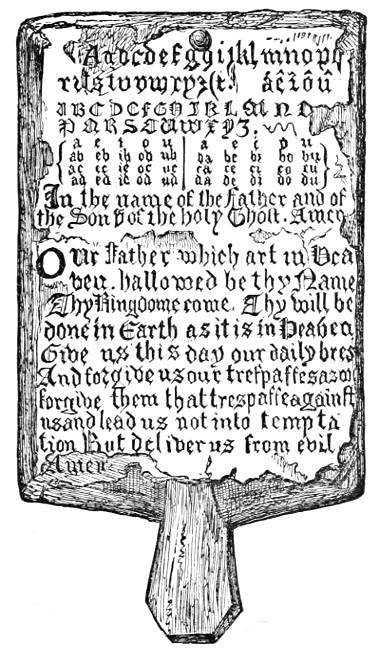 Aabcdefghijklmnopq
rſstuvwxyz&t. áéîôû
ABCDEFGHIJKLMNO
PQRSTUWXYZ.
a e i o u | a e i o u
ab eb ib ob ub | ba be bi bo bu
ac ec ic oc uc | ca ce ci co cu
ad ed id od ud | da de di do du
In the name of the father and of
the Son & of the holy Ghost. Amen
Our Father which art in Hea
ven hallowed be thy Name
Thy Kingdome come. Thy will be
done in Earth as it is in Heaven
Give us this day our daily bred
And forgive us our treſpaſſes as we
forgive them that treſpaſſe againſt
us and lead us not into tempta
tion But deliver us from evil
Amen